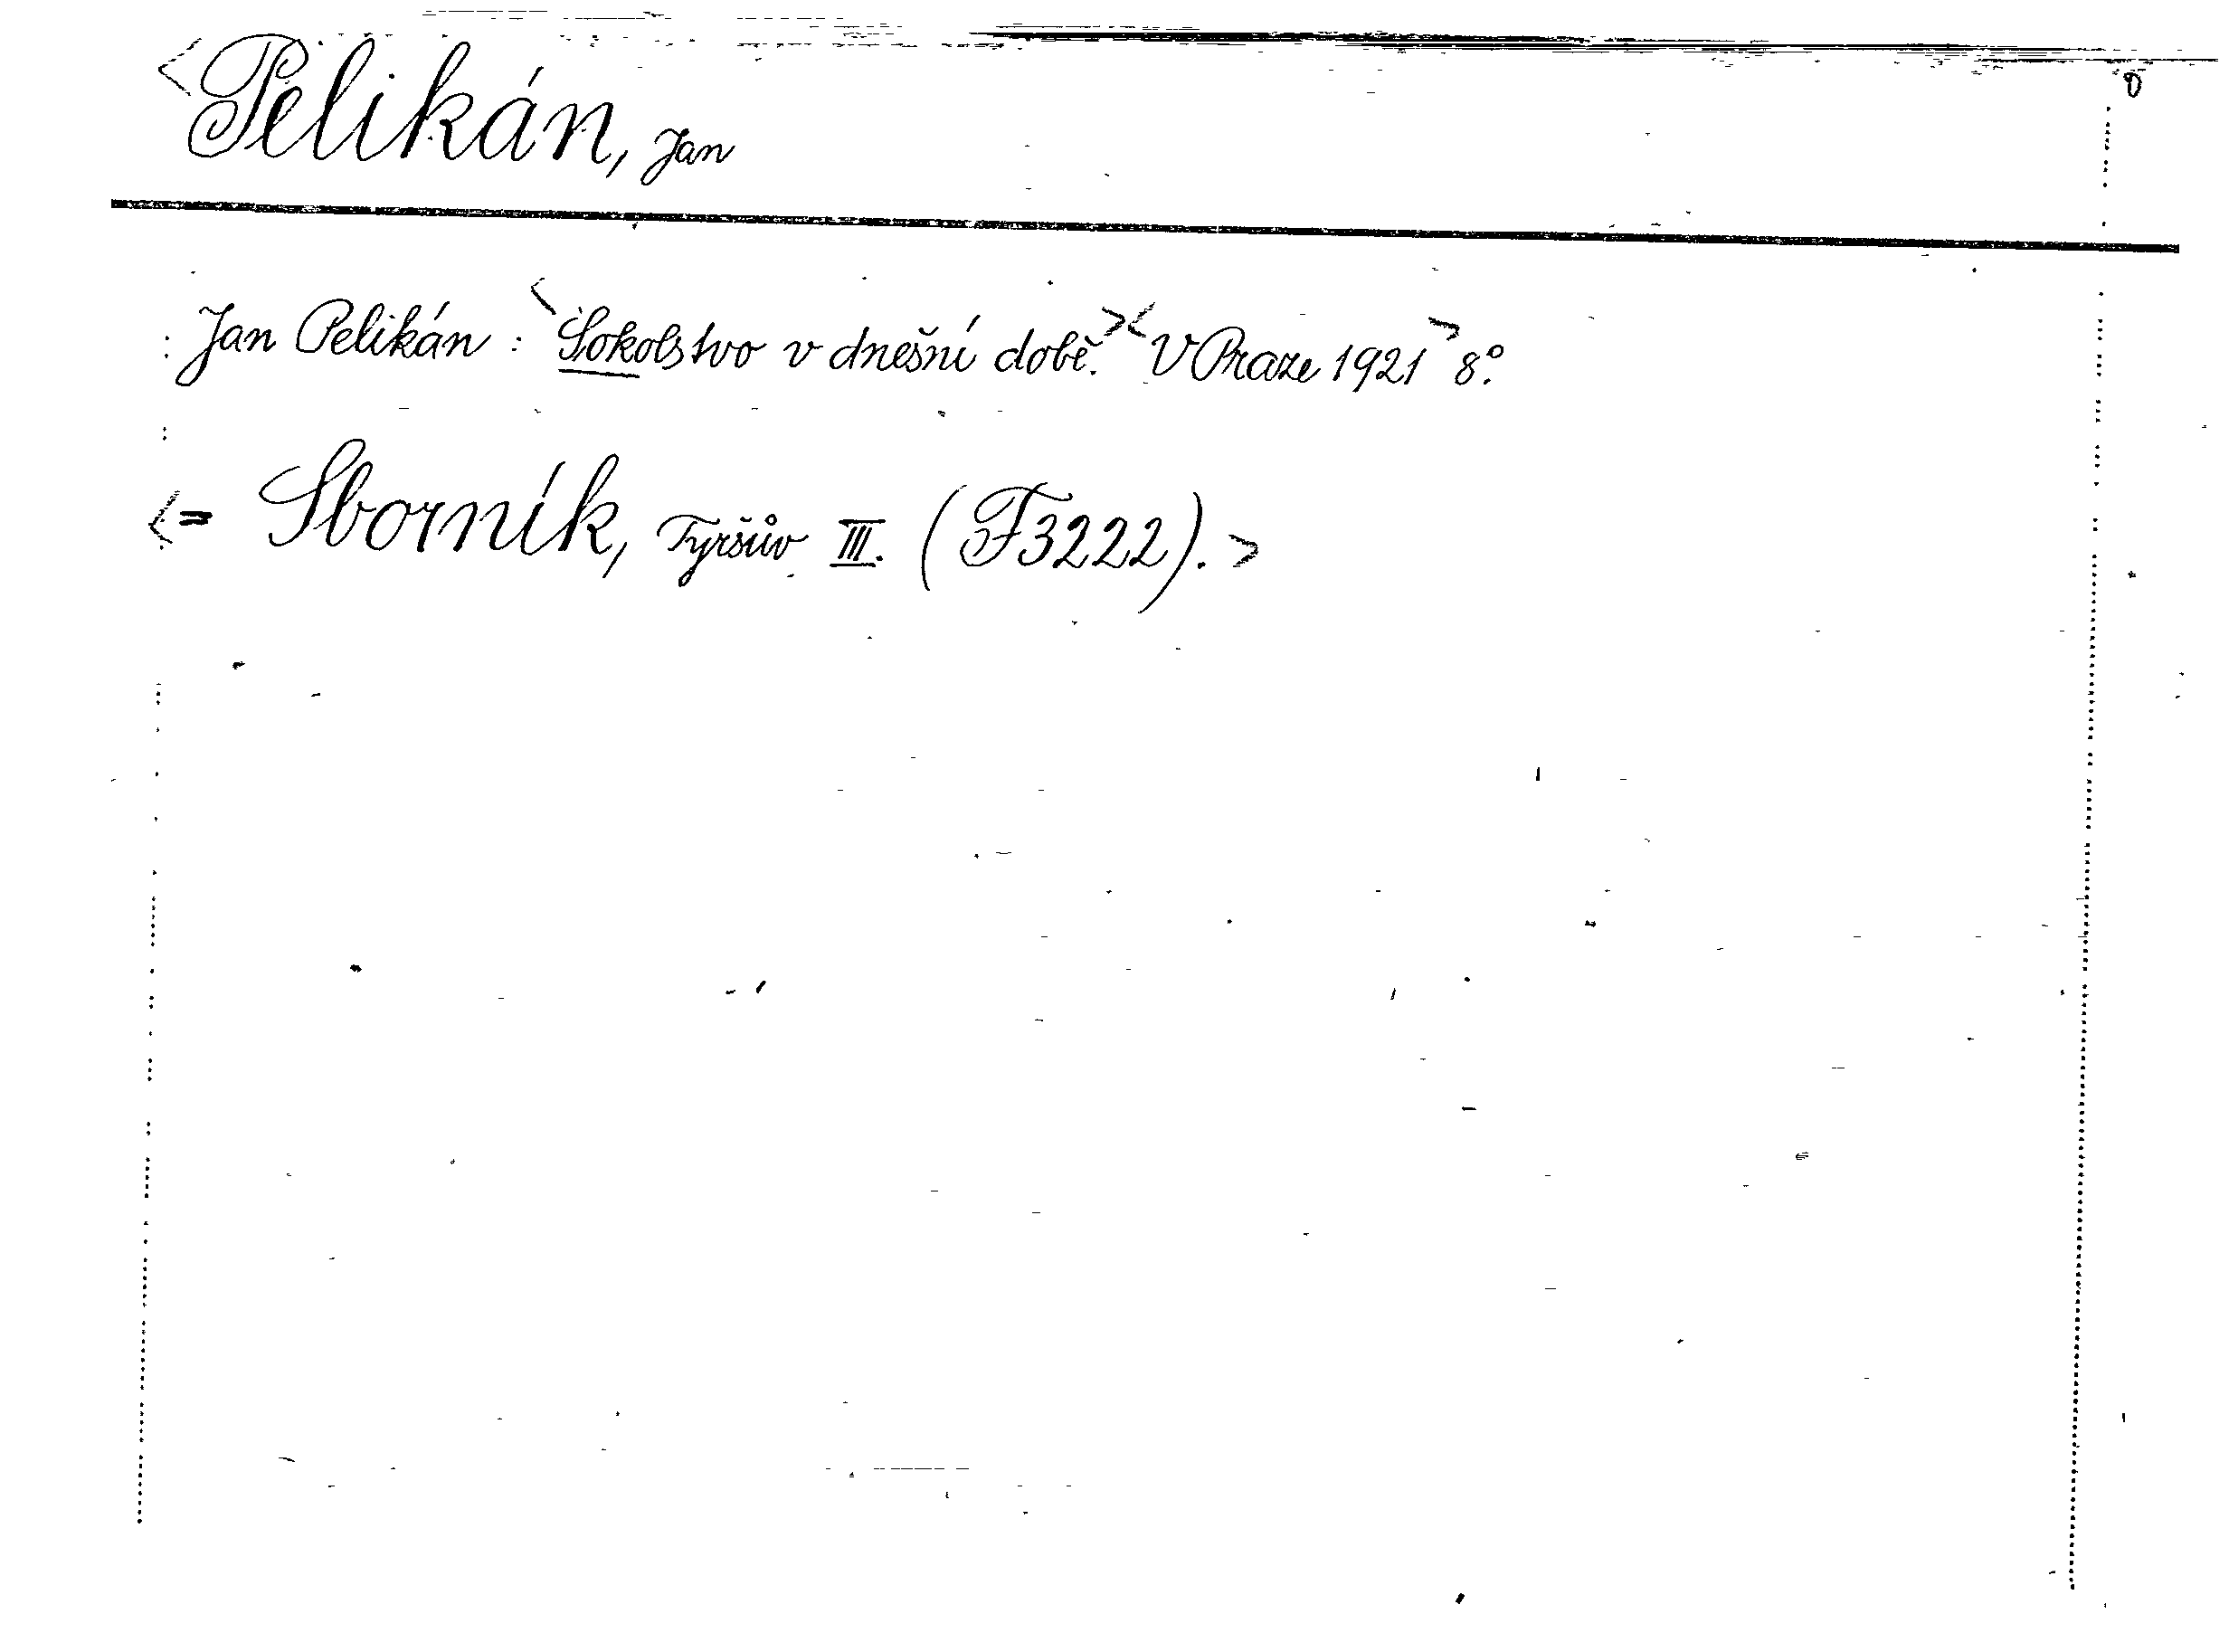 <Pelikán, Jan
Jan Pelikán: <Sokolstvo v dnešní době.><V Praze 1921> 8°.
<= Sborník, Tyršův III. (F3222).>